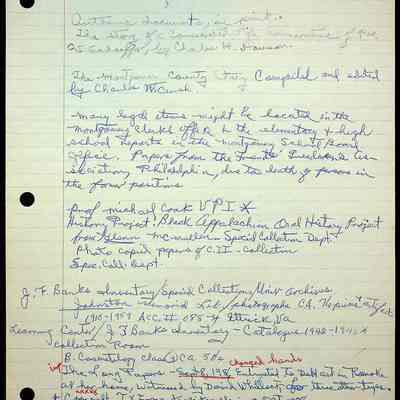 Authentic documents, in print..
The story of a Consecrated life, Commentaries of Rev.
by Charles H. Dawson.
The Montgomery County Story Compiled and edited
by Charles W. Crush
-many legal items might be located in the
montgomery Clerks Office & the elementary & high
school reports in the montgomery School Board
office. Papers from the Friends' Freedmen's As-
sociation Philadelphia, due to death of persons in
the former positions
-Prof. michael Cook VPI *
History Project: Black Appalachian Oral History Project
from Glenn mcmullen Special Collection Dept.
Photo copied papers of C.I.I - Collection
Spec. Coll. Dept.
J. F. Banks Inventory/Special Collections/Univ. Archives
Johnston memorial Lib./photographs
1910-1959 Acc. # 088- Ettrick, Va
Learning Center/J F Banks Inventory - Catalogue 1942-
Collection Room
B. Cosmetology class Ca. 50s
changed hands
The Long Papers - Sept 8, 198 Entrusted to DeHart in Roanoke
at her home, witnessed by David Whitlock, for